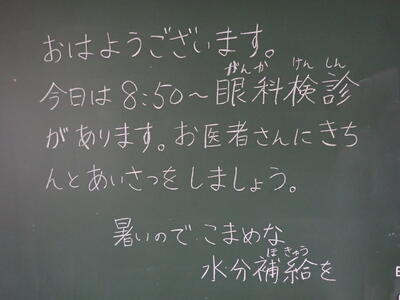 おはようございます。
がんか けんしん
今日は8:50〜眼科検診
があります。お医者さんにきち
んとあいさつをしましょう。
暑いので こまめな
ほきゅう
水分補給を